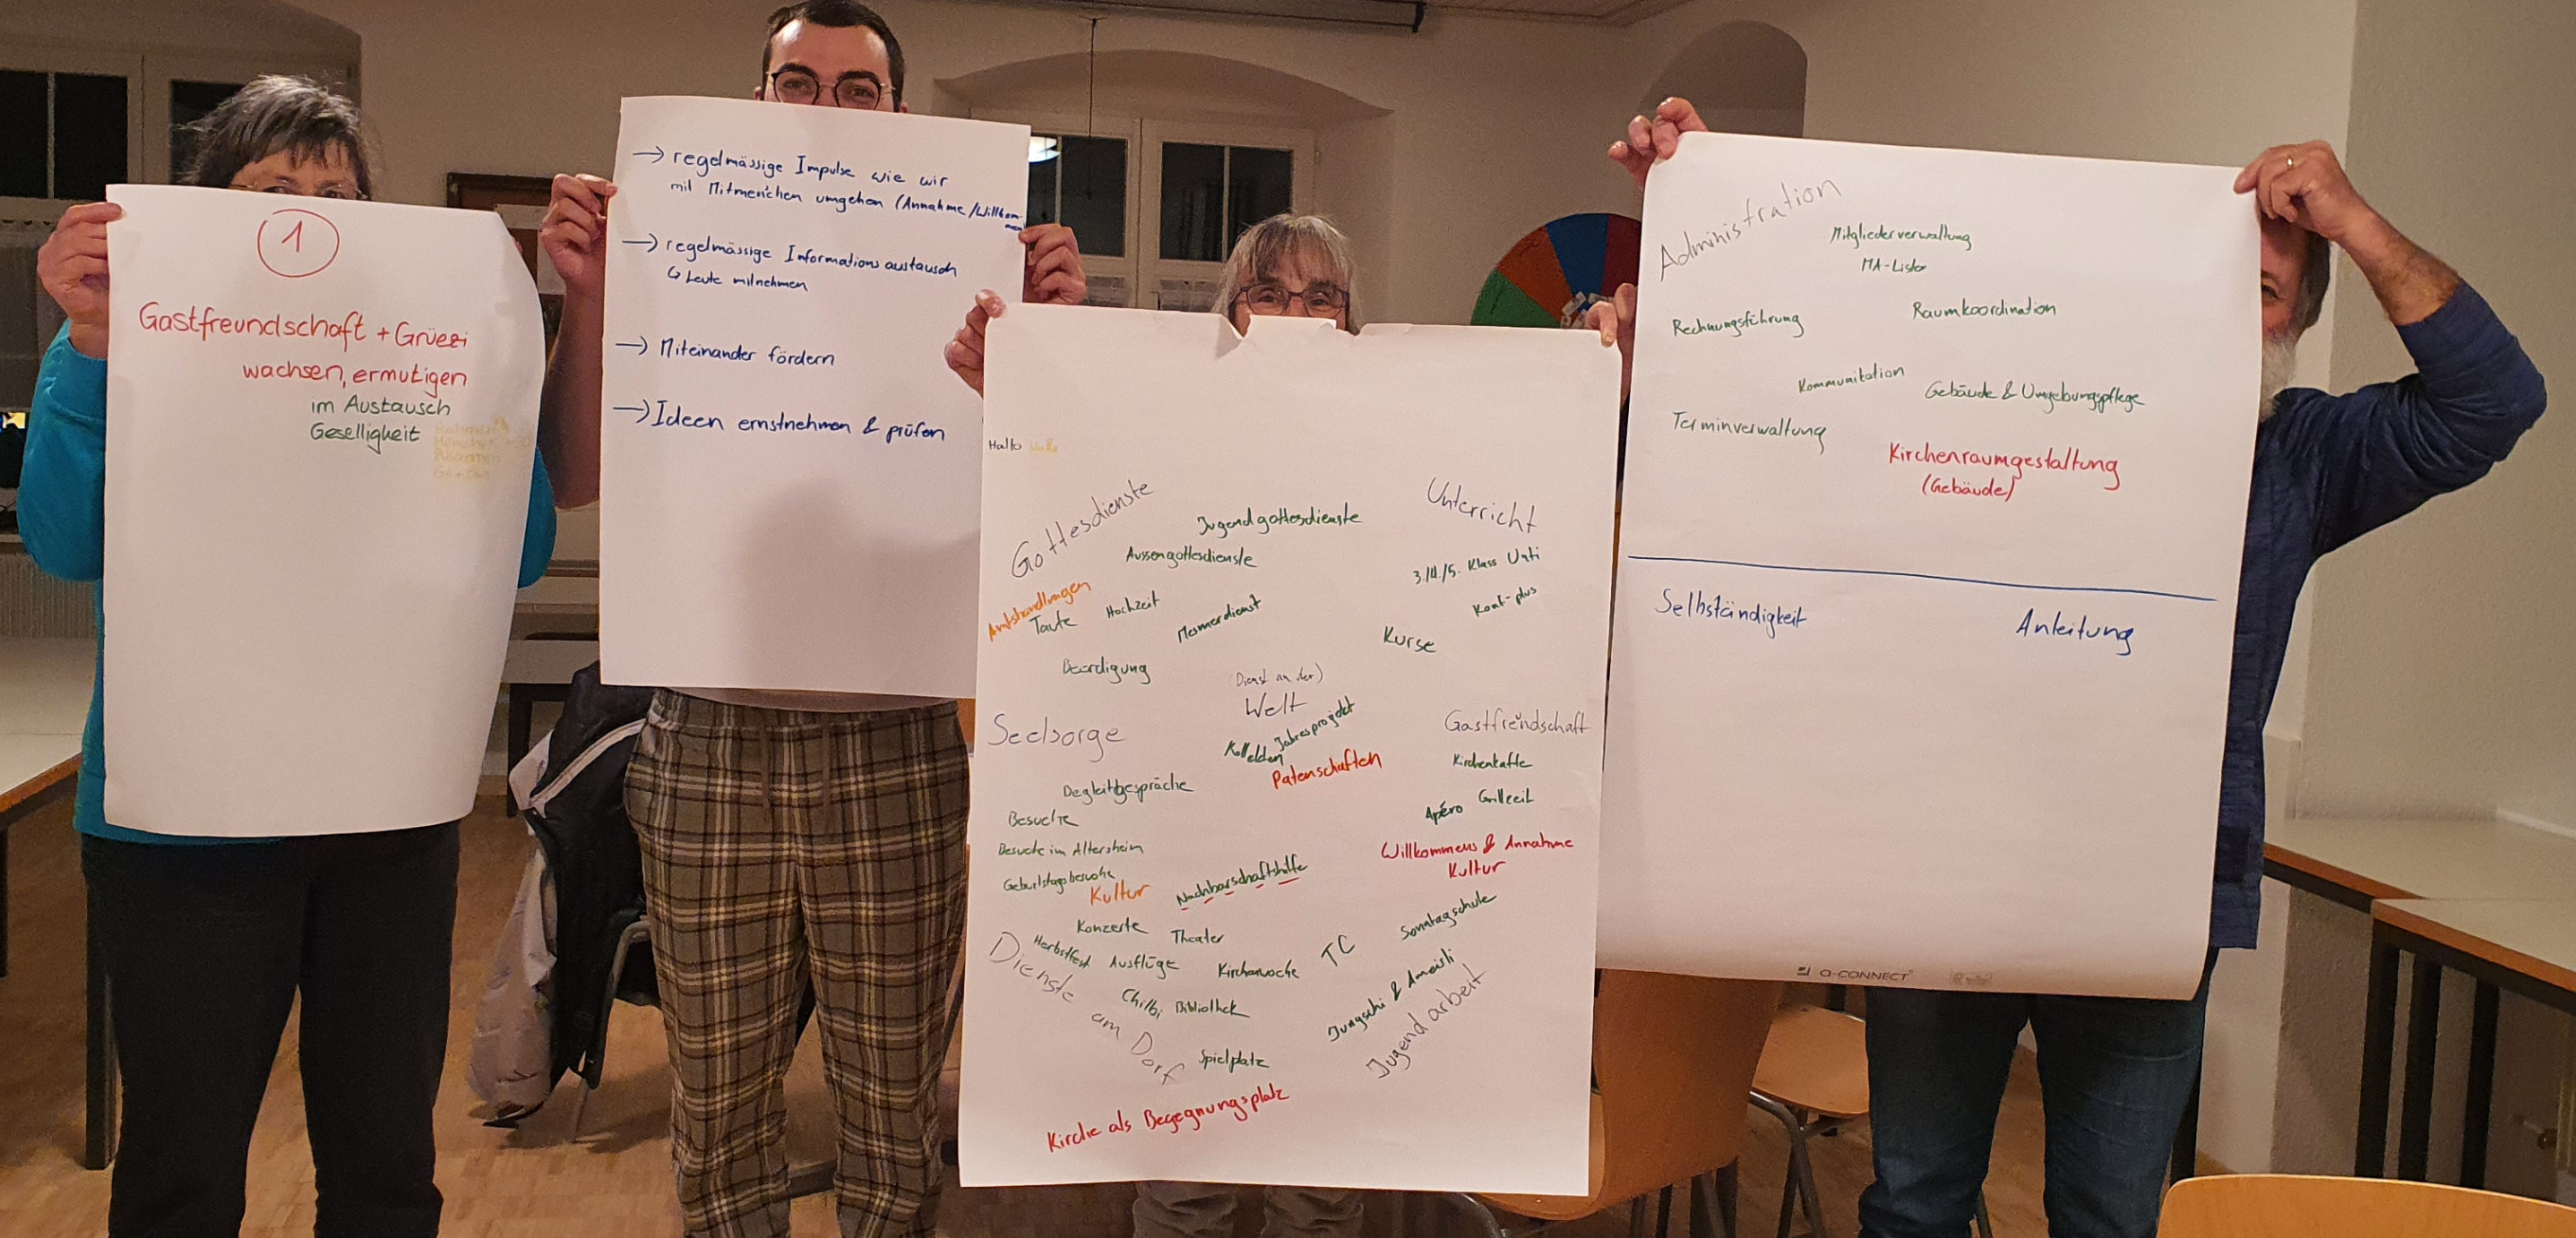 1
Gastfreundschaft + Grüezi
wachsen, ermutigen
im Austausch
Geselligkeit
→ regelmässige Impulse wie wir
mit Mitmenschen umgehen (Annahme/Willkom-
men
→ regelmässige Informationsaustausch
↳ Leute mitnehmen
→ Miteinander fördern
→ Ideen ernstnehmen & prüfen
Hallo Hallo
Gottesdienste
Jugendgottesdienste
Aussengottesdienste
Amtshandlungen
Taufe
Hochzeit
Mesmerdienst
Beerdigung
Unterricht
3./4./5. Klass Unti
Konf-plus
Kurse
(Dienst an der)
Welt
Kollekten
Jahresprojekt
Patenschaften
Seelsorge
Begleitgespräche
Besuche
Besuche im Altersheim
Geburtstagsbesuche
Gastfreundschaft
Kirchenkaffe
Apéro
Grillzeit
Willkommens & Annahme
Kultur
Kultur
Nachbarschaftshilfe
Konzerte
Theater
Herbstfest
Ausflüge
Kirchenwoche
Chilbi
Bibliothek
Dienste
am Dorf
Spielplatz
Kirche als Begegnungsplatz
TC
Sonntagschule
Jungschi & Ameisli
Jugendarbeit
Administration
Mitgliederverwaltung
MA-Liste
Rechnungsführung
Raumkoordination
Kommunikation
Gebäude & Umgebungspflege
Terminverwaltung
Kirchenraumgestaltung
(Gebäude)
Selbständigkeit
Anleitung
Q-CONNECT